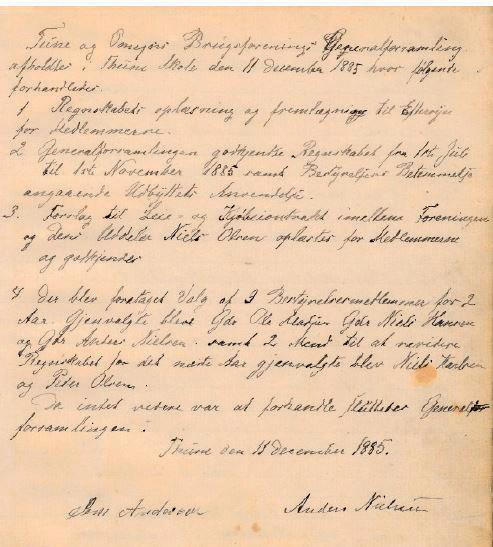 Tune og Omegns Brugsforenings Generalforsamling
afholdtes i Thune Skole den 11 december 1885 hvor følgende
forhandledes
1 Regnskabets oplæsning og fremlægning til Eftersyn
for Medlemmerne.
2 Generalforsamlingen godkjente Regnskabet fra 1st Juli
til 1st November 1885 samt Bestyrelsens Bestemmelse
angaaende Udbyttets Anvendelse.
3. Forslag til Leie- og Kjøbekontrakt imellem Foreningen
og dens Uddeler Niels Olsen oplæstes for Medlemmerne
og godkjendes
4 Der blev foretaget Valg af 3 Bestyrelsesmedlemmer for 2
Aar. Gjenvalgte bleve Gdr Ole Madsen Gdr Niels Hansen
og Gdr Anders Nielsen. samt 2 Mænd til at revidere
Regnskabet for det næste Aar gjenvalgte blev Niels
og Peder Olsen.
Da intet videre var at forhandle sluttedes General
forsamlingen.
Thune den 11 december 1885.
Jens Andersen Anders Nielsen